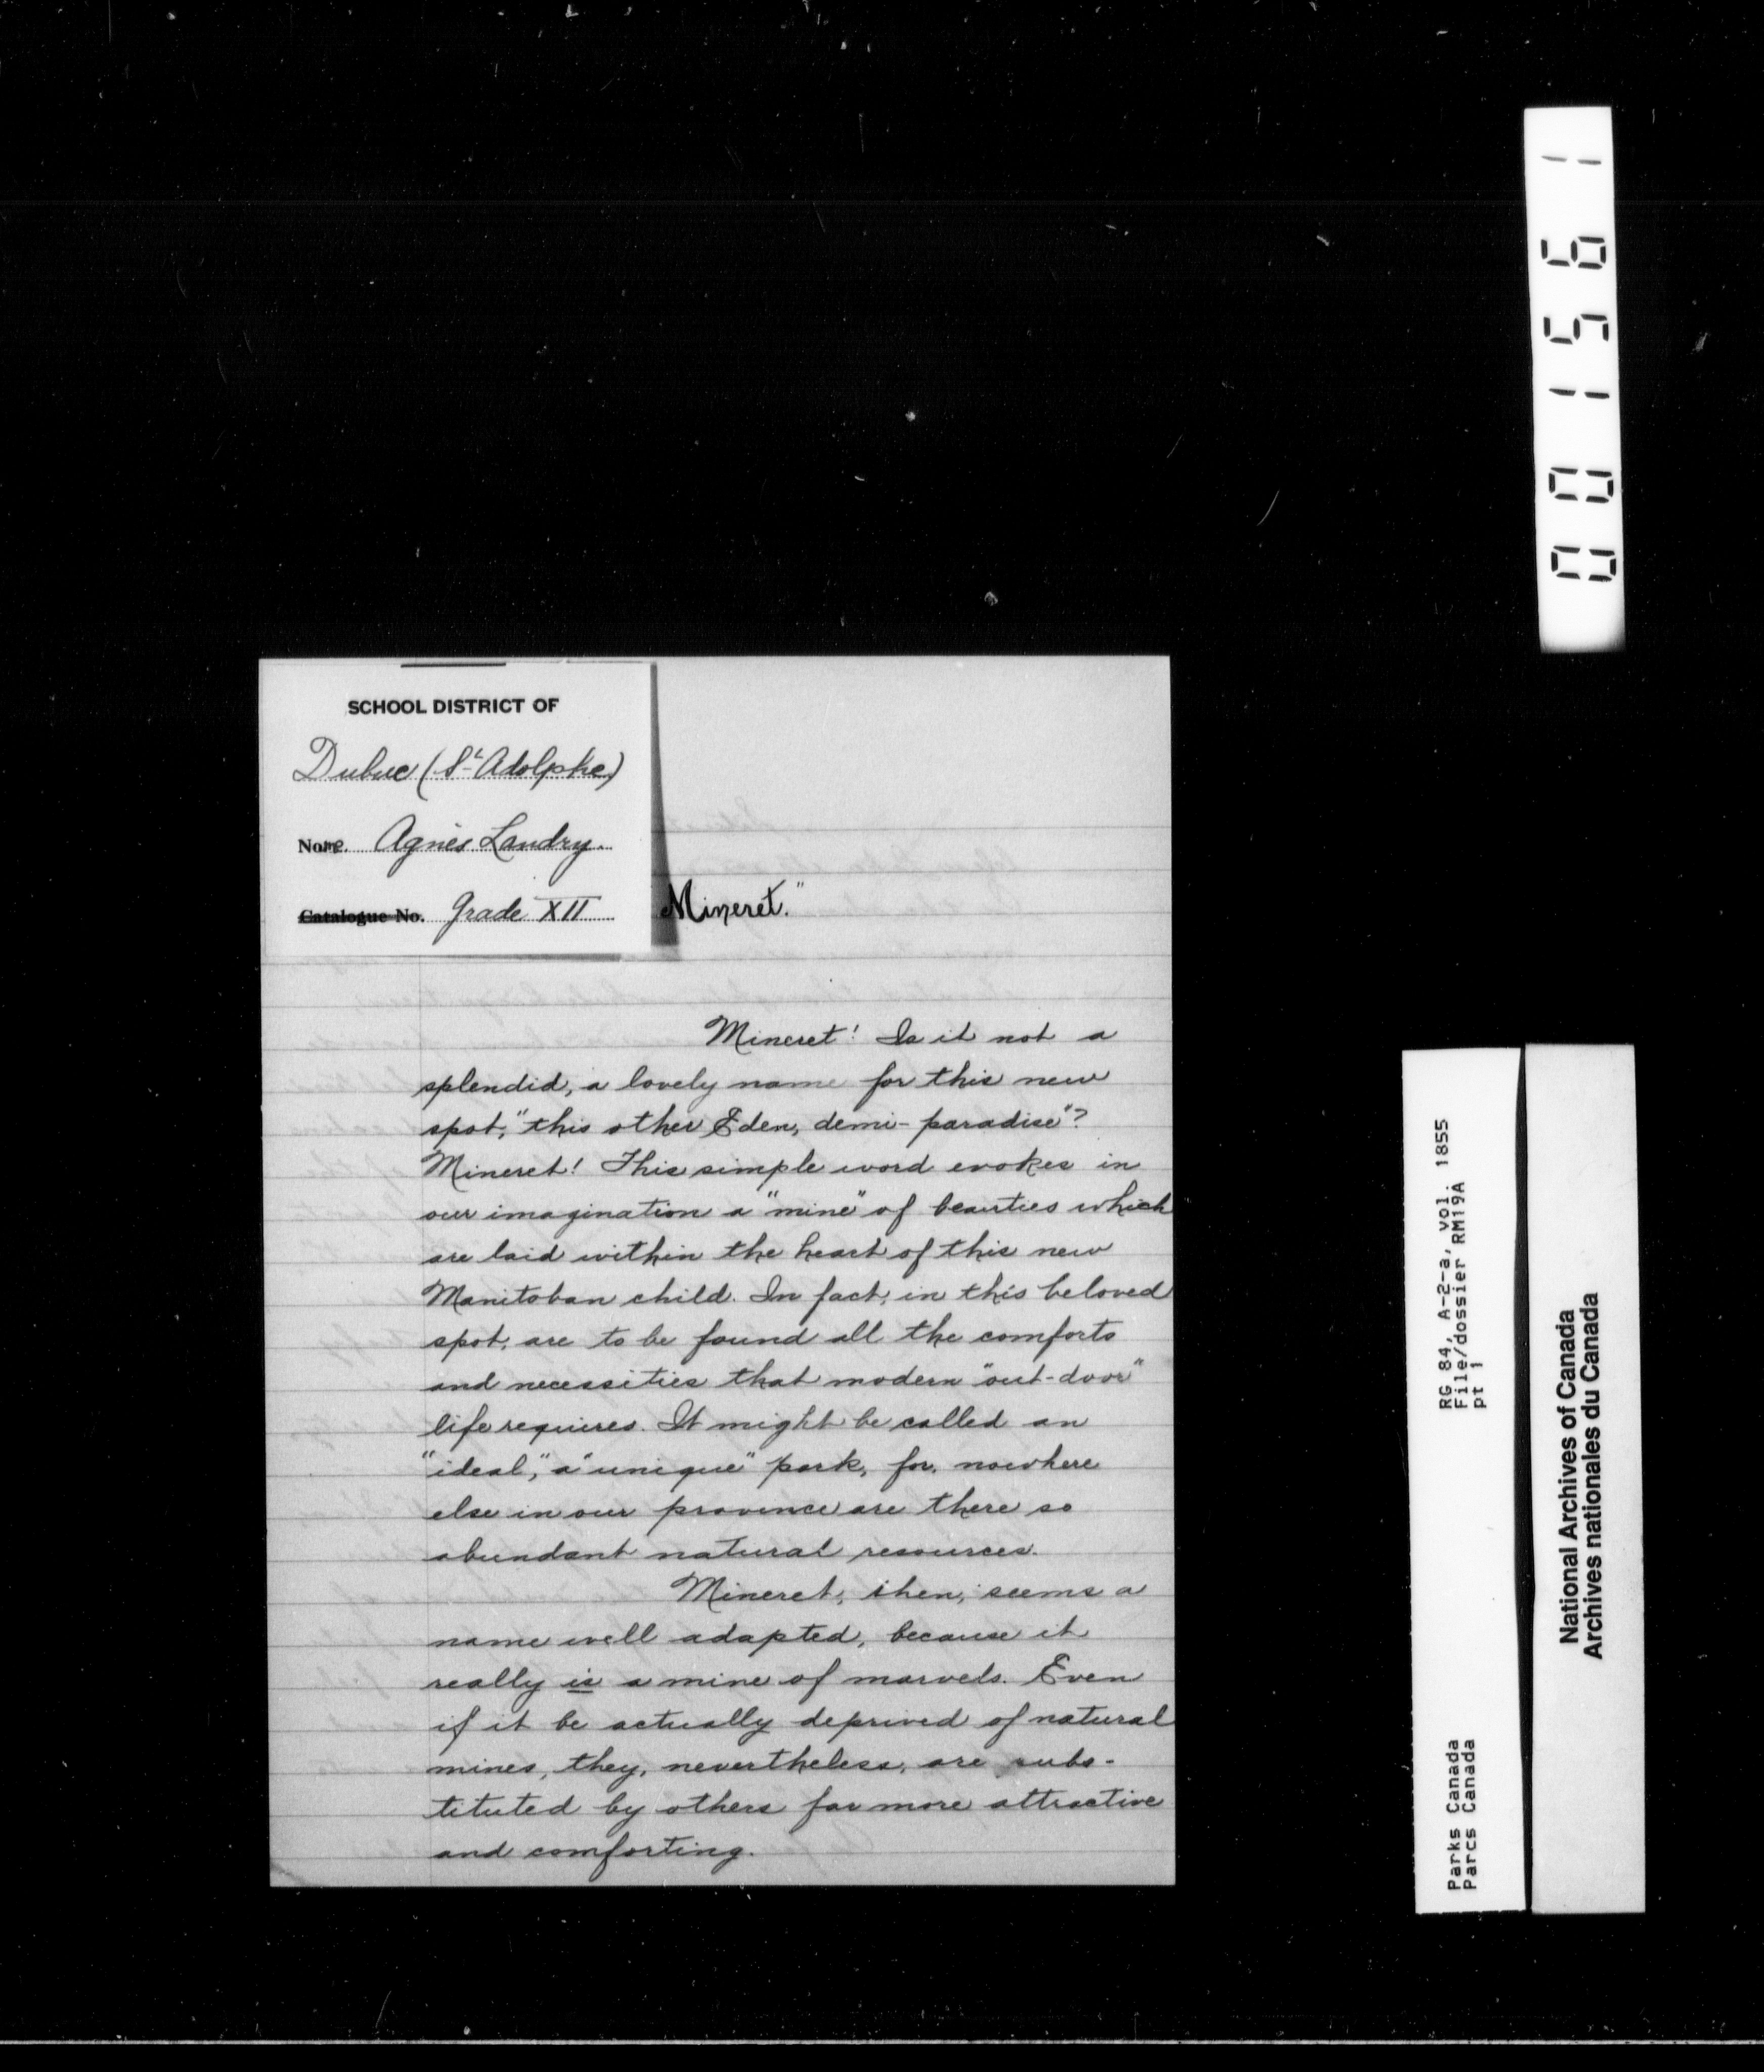 SCHOOL DISTRICT OF
Dubuc (St Adolphe)
Name. Agnès Landry.
Catalogue No. Grade XII
Mineret."
Mineret! Is it not a
splendid, a lovely name for this new
spot, "this other Eden, demi-paradise"?
Mineret! This simple word evokes in
our imagination a "mine" of beauties which
are laid within the heart of this new
Manitoban child. In fact, in this beloved
spot, are to be found all the comforts
and necessities that modern "out-door"
life requires. It might be called an
"ideal", a "unique" park, for, nowhere
else in our province are there so
abundant natural resources.
Mineret, then, seems a
name well adapted, because it
really is a mine of marvels. Even
if it be actually deprived of natural
mines, they, nevertheless, are subs-
tituted by others far more attractive
and comforting.
001561
RG 84, A-2-a, vol. 1855
File/dossier RM19A
pt 1
Parks Canada
Parcs Canada
National Archives of Canada
Archives nationales du Canada